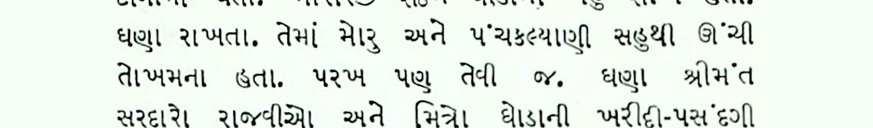 ઘણા રાખતા. તેમાં મેારુ અને પંચકલ્યાણી સહુથી ઊંચી
તેાખમના હતા. પરખ પણ તેવી જ. ઘણા શ્રીમંત
સરદારેા રાજવીએા અને મિત્રેા ઘેાડાની ખરીદી-પસંદગી